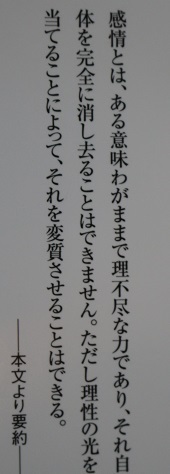 感情とは、ある意味わがままで理不尽な力であり、それ自
体を完全に消し去ることはできません。ただし理性の光を
当てることによって、それを変質させることはできる。
――本文より要約――